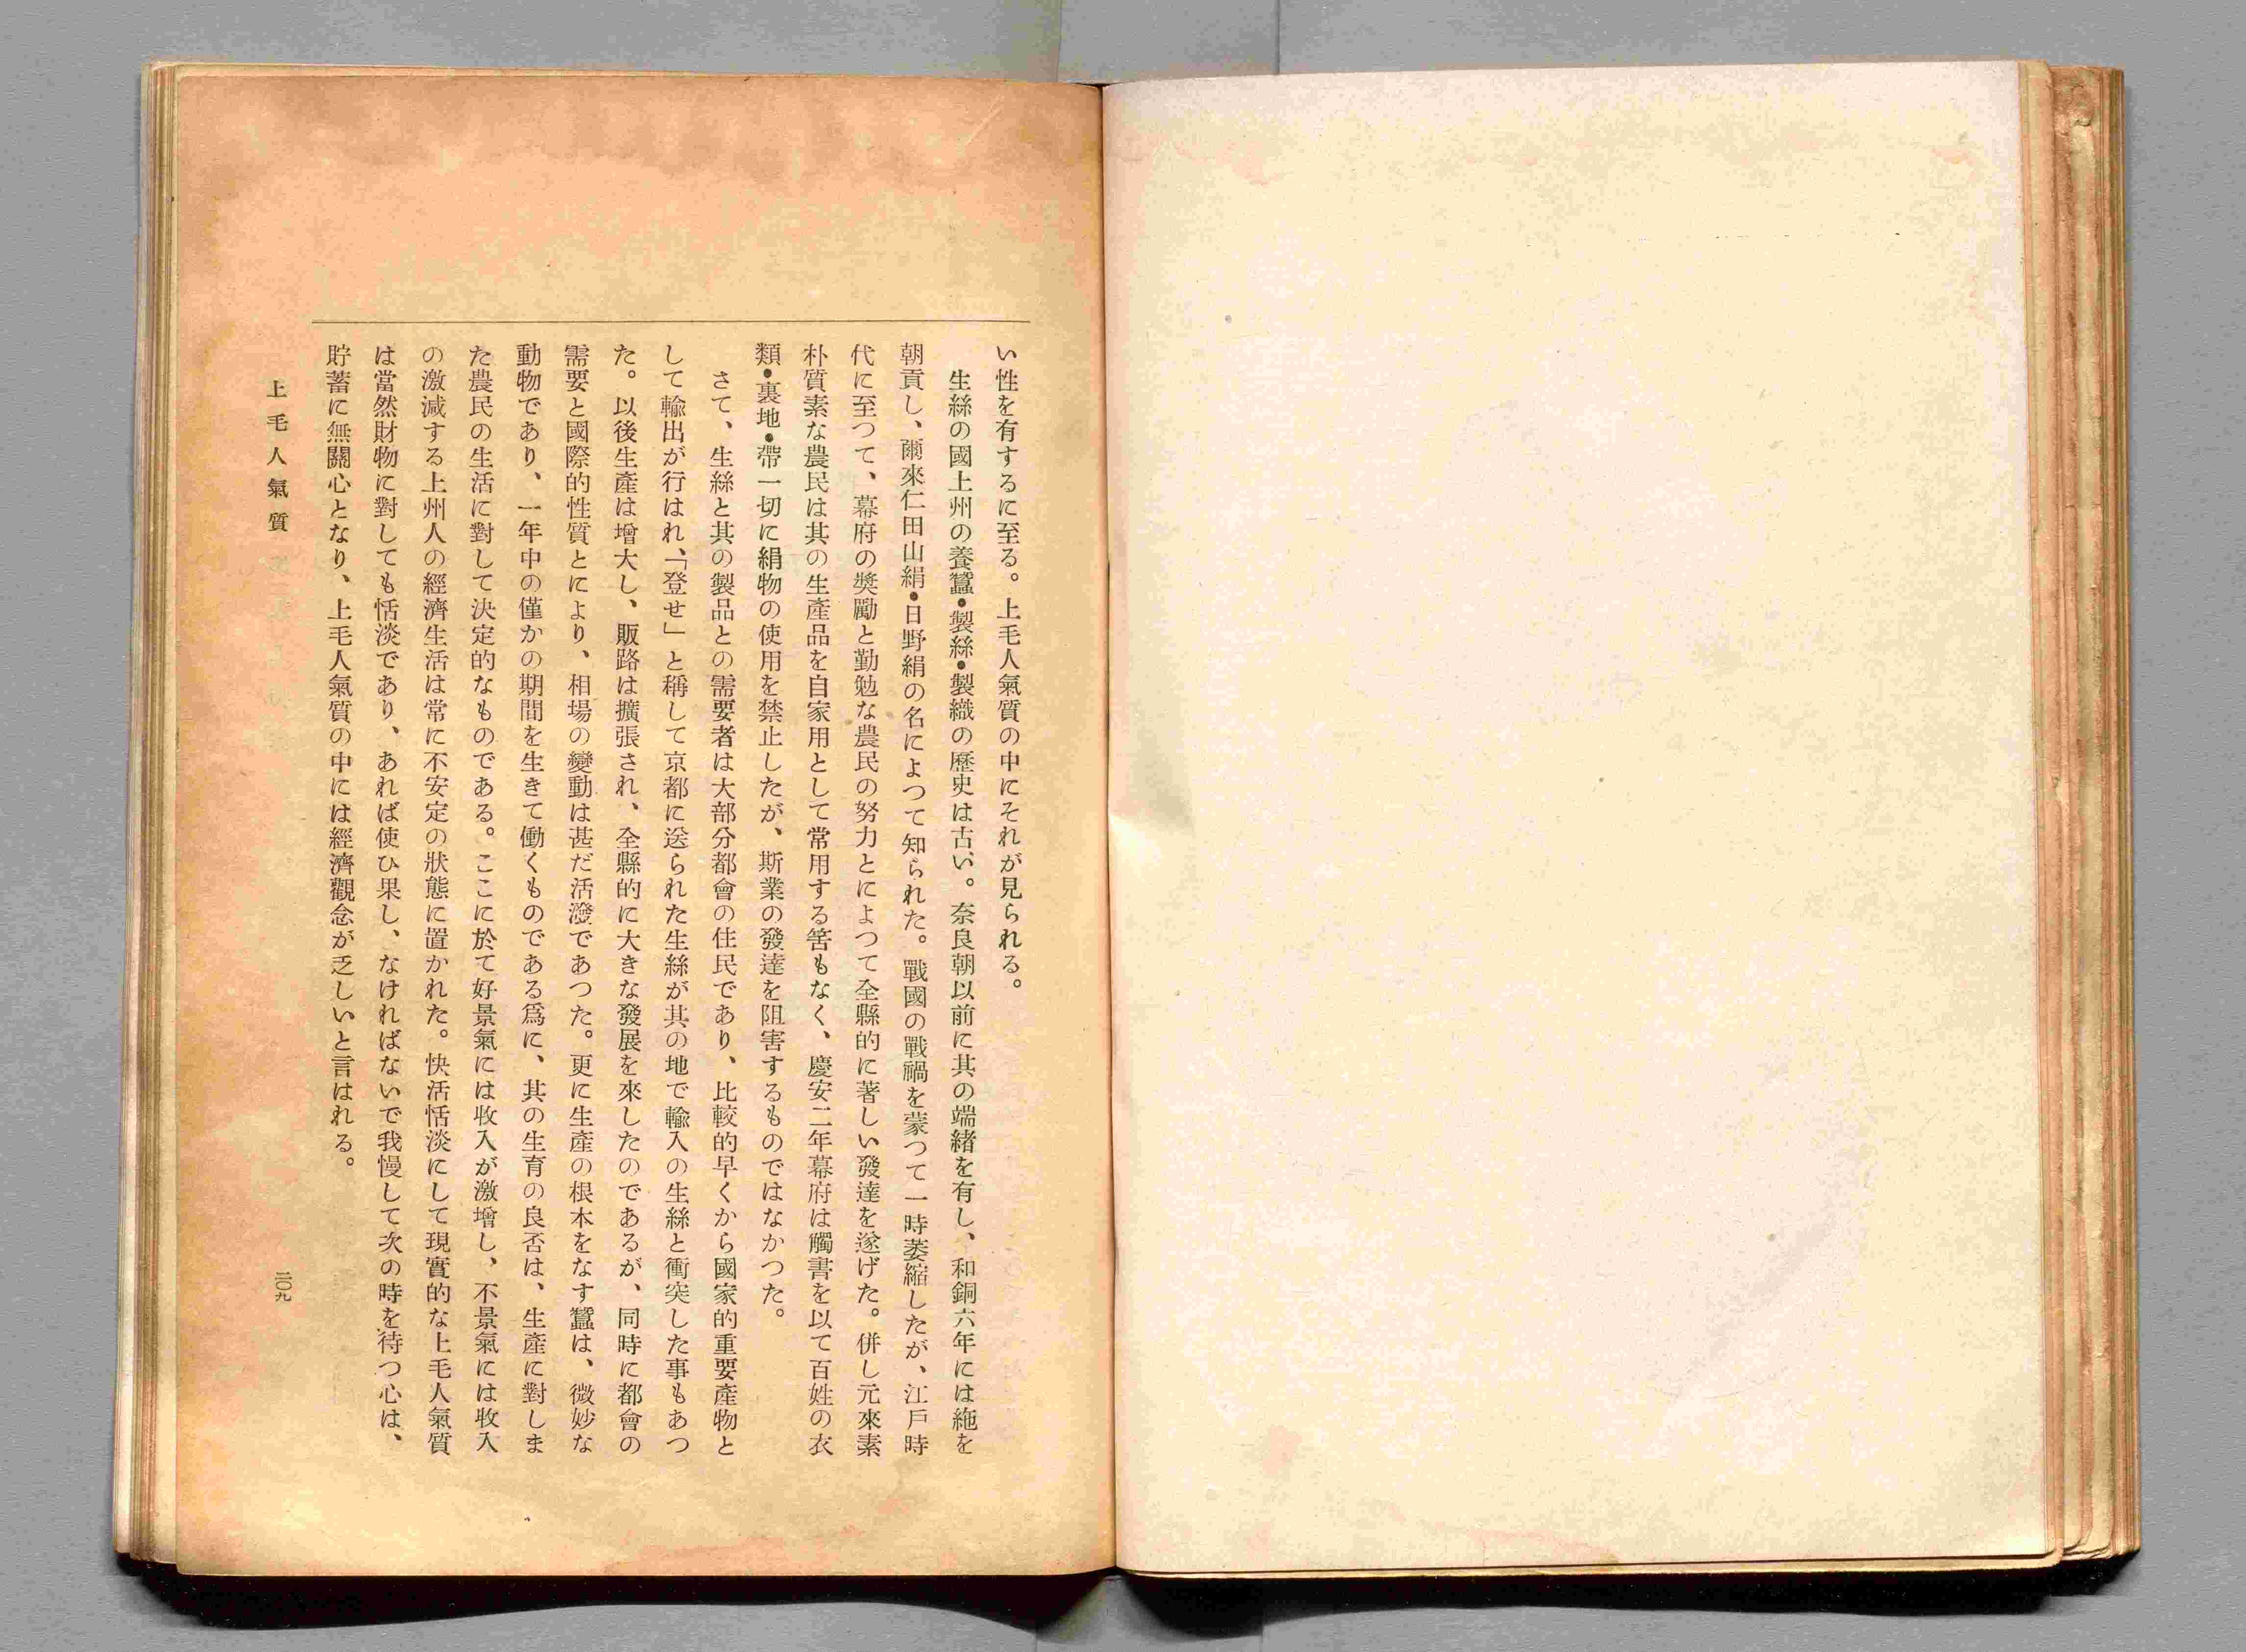 い性を有するに至る。上毛人氣質の中にそれが見られる。
生絲の國上州の養蠶・製絲・製織の歷史は古い。奈良朝以前に其の端緒を有し、和銅六年には絁を
朝貢し、爾來仁田山絹・日野絹の名によつて知られた。戰國の戰禍を蒙つて一時萎縮したが、江戶時
代に至つて、幕府の奬勵と勤勉な農民の努力とによつて全縣的に著しい發達を遂げた。併し元來素
朴質素な農民は其の生產品を自家用として常用する筈もなく、慶安二年幕府は觸書を以て百姓の衣
類・裏地・帶一切に絹物の使用を禁止したが、斯業の發達を阻害するものではなかつた。
さて、生絲と其の製品との需要者は大部分都會の住民であり、比較的早くから國家的重要產物と
して輸出が行はれ、「登せ」と稱して京都に送られた生絲が其の地で輸入の生絲と衝突した事もあつ
た。以後生產は增大し、販路は擴張され、全縣的に大きな發展を來したのであるが、同時に都會の
需要と國際的性質とにより、相場の變動は甚だ活潑であつた。更に生產の根本をなす蠶は、微妙な
動物であり、一年中の僅かの期間を生きて働くものである爲に、其の生育の良否は、生產に對しま
た農民の生活に對して決定的なものである。ここに於て好景氣には收入が激增し、不景氣には收入
の激減する上州人の經濟生活は常に不安定の狀態に置かれた。快活恬淡にして現實的な上毛人氣質
は當然財物に對しても恬淡であり、あれば使ひ果し、なければないで我慢して次の時を待つ心は、
貯蓄に無關心となり、上毛人氣質の中には經濟觀念が乏しいと言はれる。
上毛人氣質
二〇九